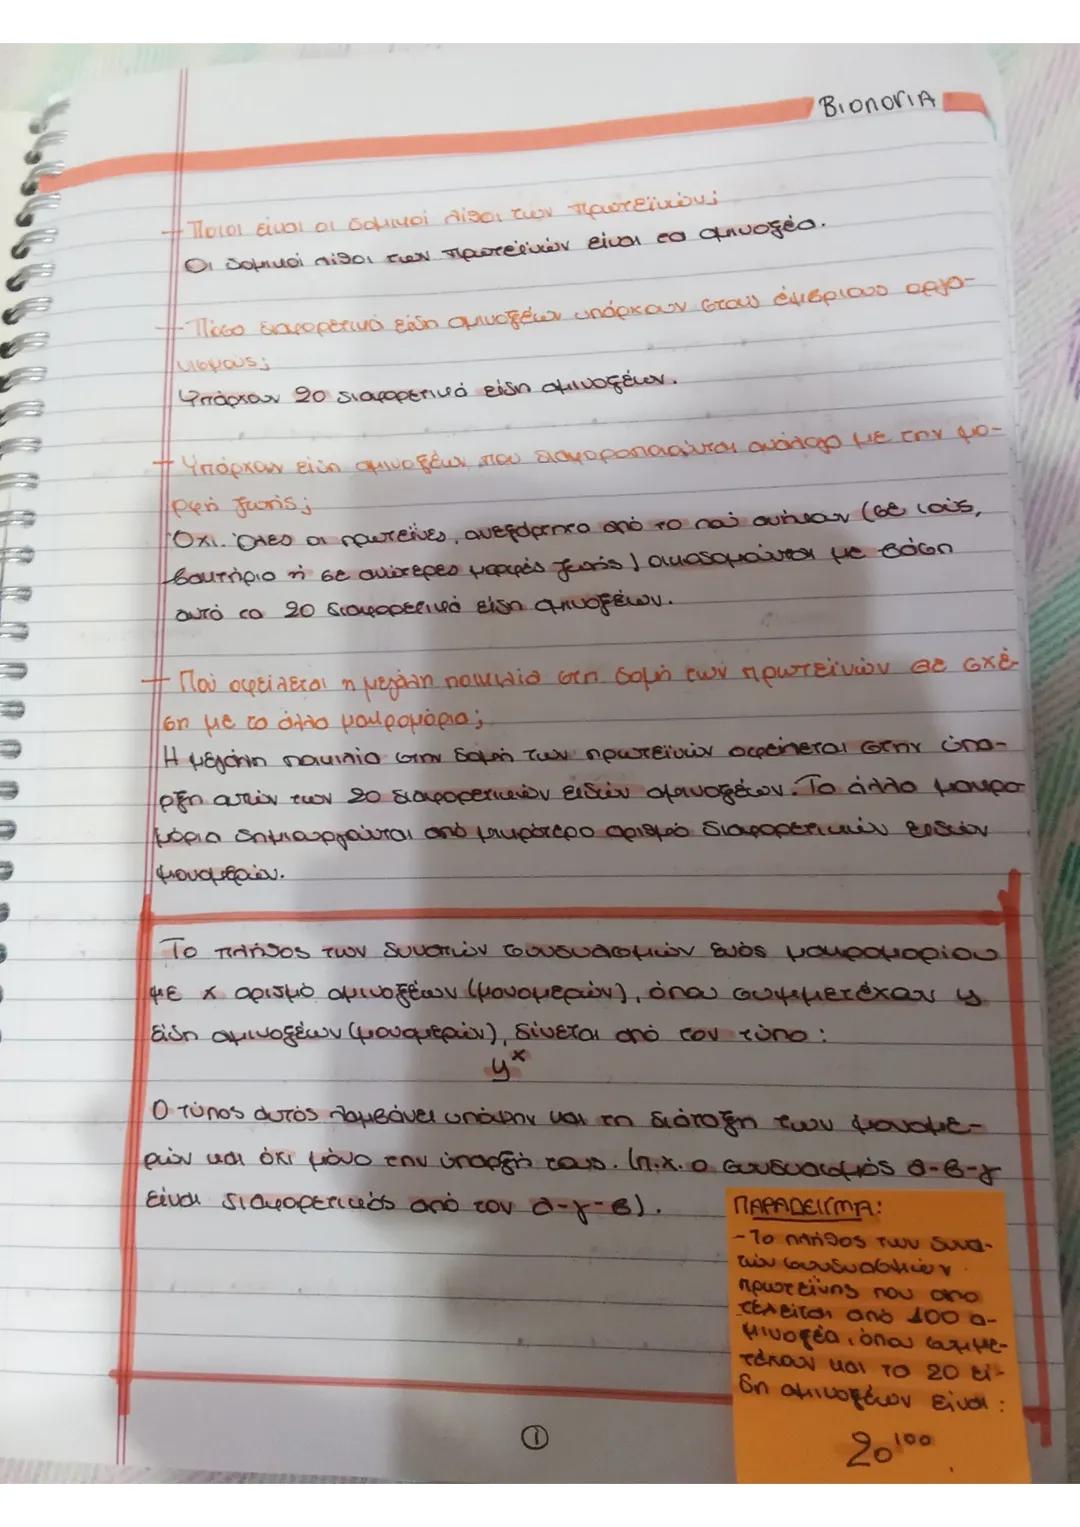 ΒΙΟΛΟΓΙΑ
- Ποιοι είναι οι δομικοί λίθοι των πρωτεϊνών;
Οι δομικοί λίθοι των πρωτεϊνών είναι τα αμινοξέα.
- Πόσα διαφορετικά είδη αμινοξέων υπάρχουν στους έμβριους οργα-
νισμούς;
Υπάρχουν 20 διαφορετικά είδη αμινοξέων.
- Υπάρχουν είδη αμινοξέων που διαφοροποιούνται ανάλογα με την μο-
ρφή ζωής;
Όχι. Όλες οι πρωτεΐνες, ανεξάρτητα από το πού ανήκουν (σε ιούς,
βακτήρια ή σε ανώτερες μορφές ζωής) οικοδομούνται με βάση
αυτά τα 20 διαφορετικά είδη αμινοξέων.
- Πού οφείλεται η μεγάλη ποικιλία στη δομή των πρωτεϊνών σε σχέ-
ση με τα άλλα μακρομόρια;
Η μεγάλη ποικιλία στην δομή των πρωτεϊνών οφείλεται στην ύπα-
ρξη αυτών των 20 διαφορετικών ειδών αμινοξέων. Τα άλλα μακρο
μόρια δημιουργούνται από μικρότερο αριθμό διαφορετικών ειδών
μονομερών.
Το πλήθος των δυνατών συνδυασμών ενός μακρομορίου
με x αριθμό αμινοξέων (μονομερών), όπου συμμετέχουν y
είδη αμινοξέων (μονομερών), δίνεται από τον τύπο:
y^x
Ο τύπος αυτός λαμβάνει υπόψην και τη διάταξη των μονομε-
ρών και όχι μόνο την ύπαρξή τους. (π.χ. ο συνδυασμός α-β-γ
είναι διαφορετικός από τον α-γ-β).
ΠΑΡΑΔΕΙΓΜΑ:
- Το πλήθος των δυνα-
τών συνδυασμών
πρωτεΐνης που απο
τελείται από 100 α-
μινοξέα, όπου συμμε-
τέχουν και τα 20 εί-
δη αμινοξέων είναι:
20^100
1